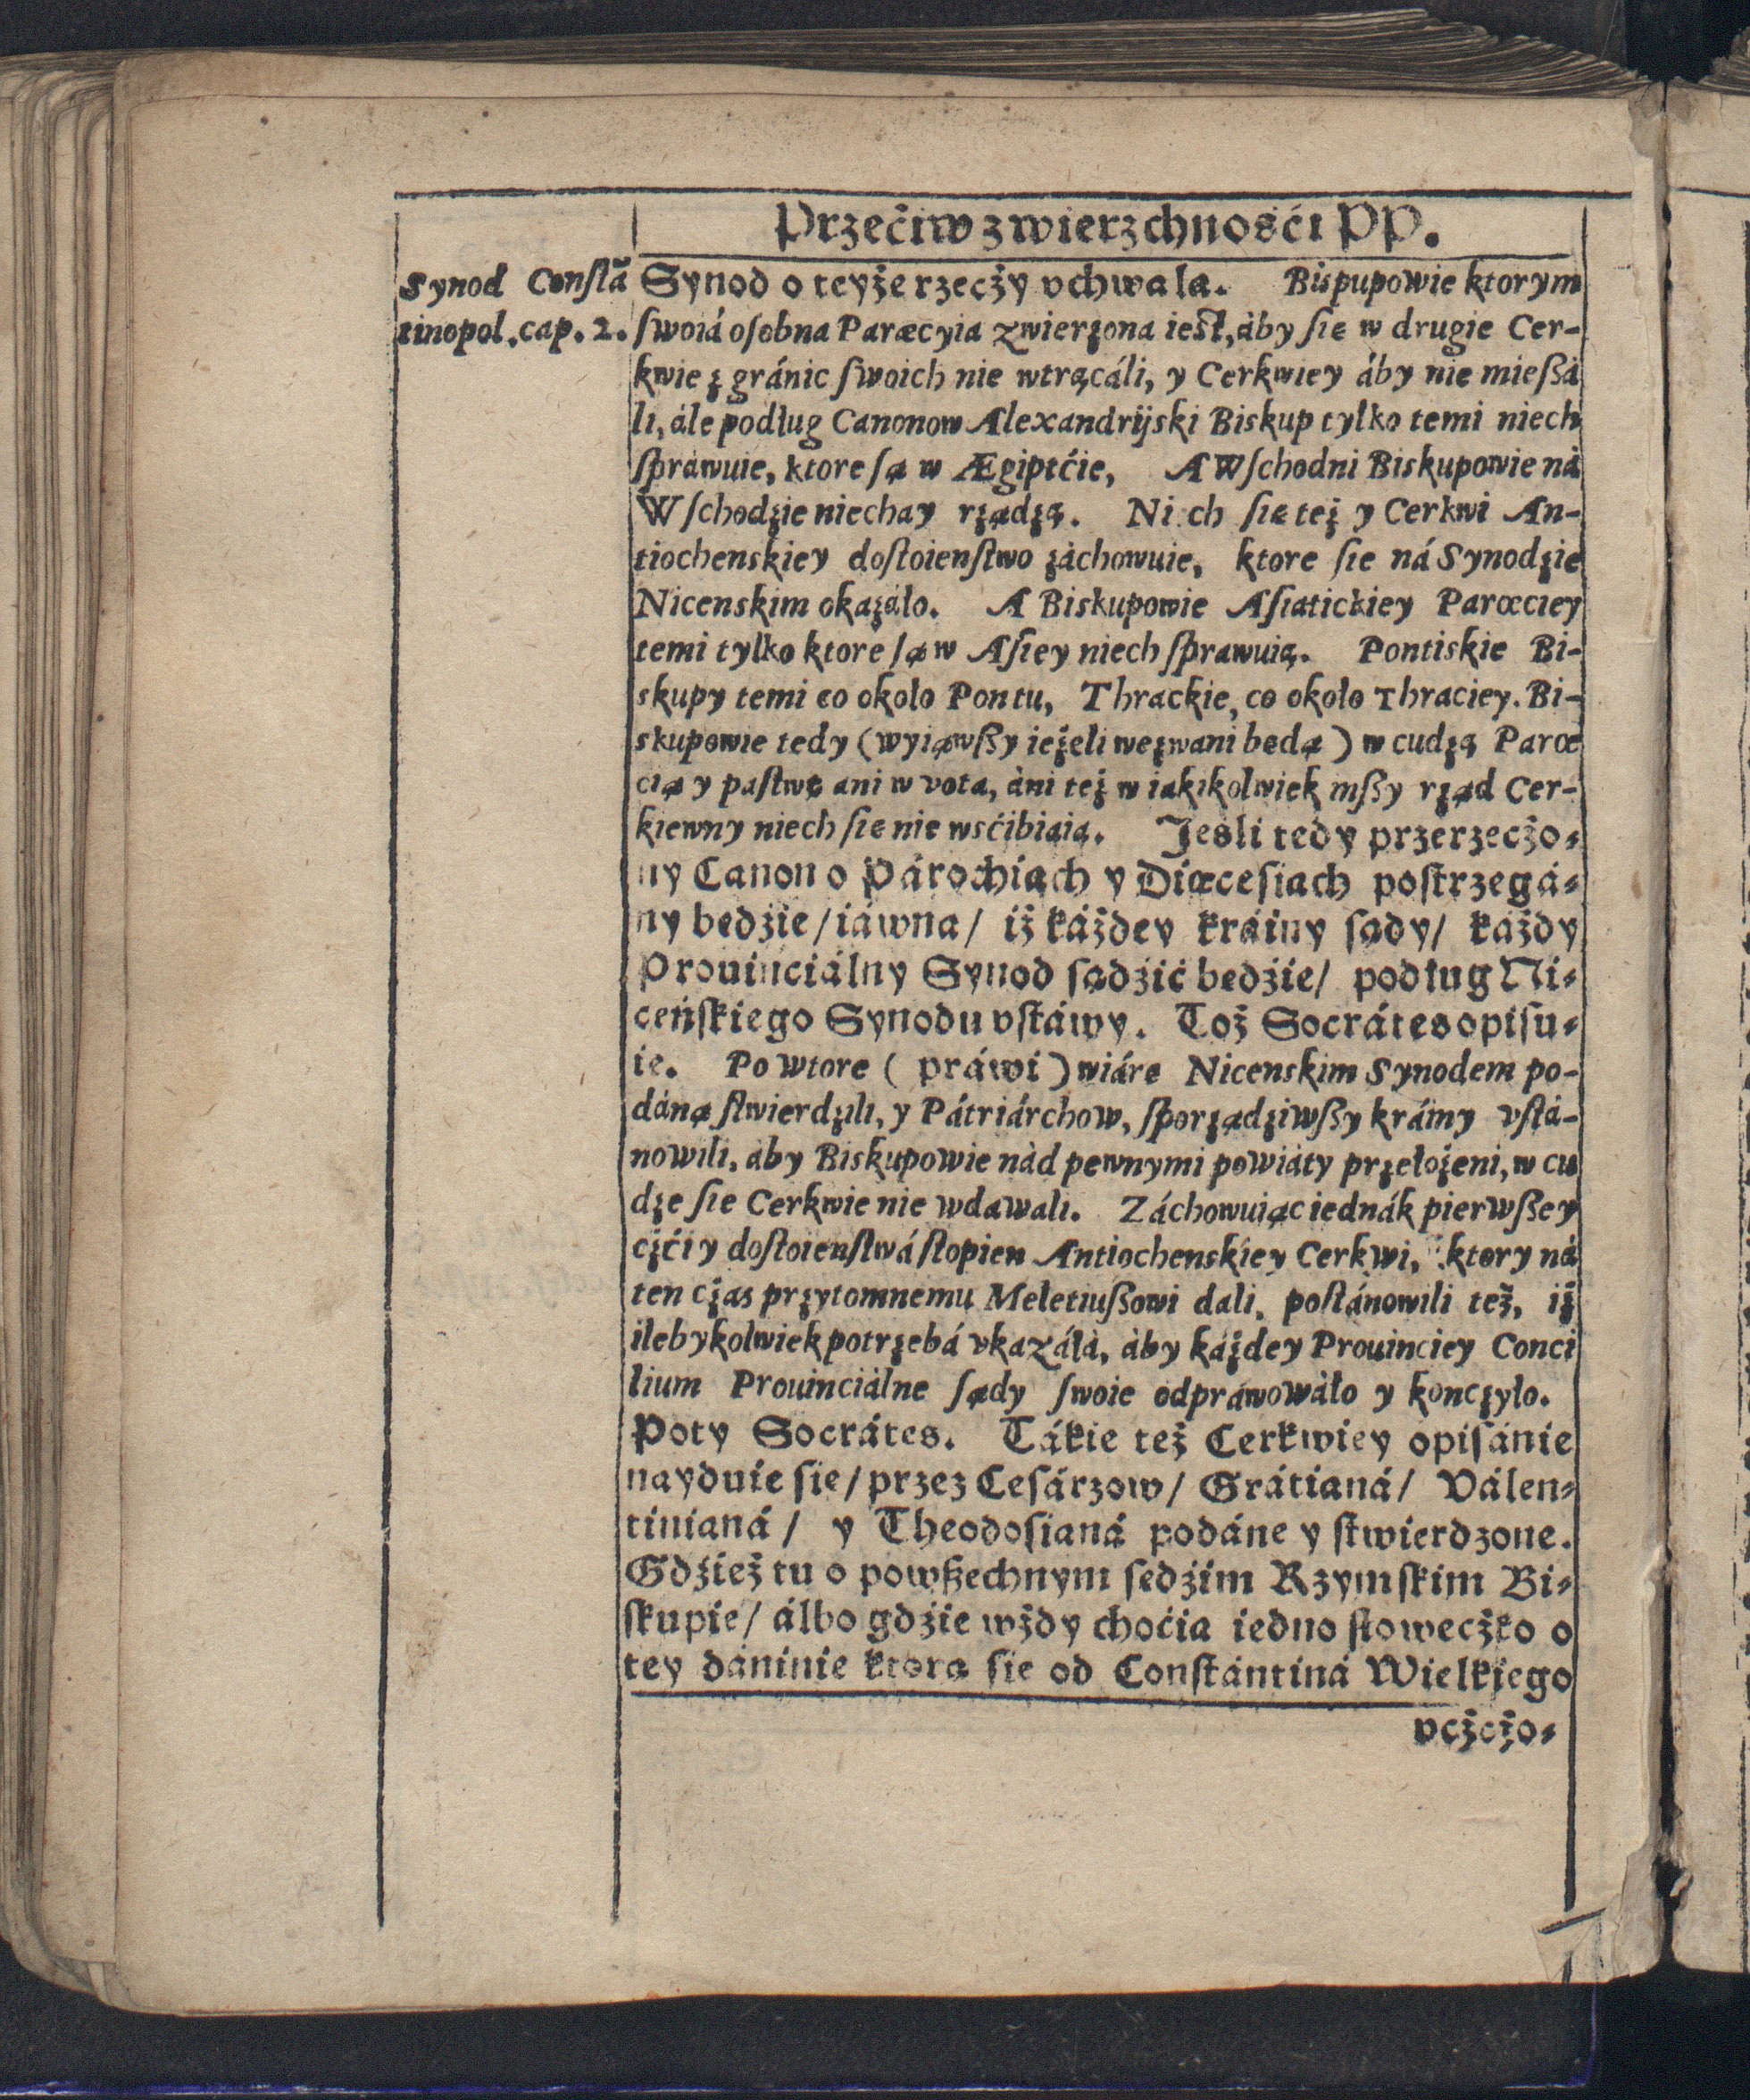 Przećiw zwierzchnośći PP.
Synod Conſtã
tinopol. cap. 2.
Synod o teyże rzeczy vchwala. Bispupowie ktorym
ſwoiá oſobna Paræcyia zwierzona ieſt, áby ſie w drugie Cer-
kwie z gránic ſwoich nie wtrącáli, y Cerkwiey áby nie mieſſá
li, ále podług Canonow Alexandrijski Biskup tylko temi niech
ſpráwuie, ktore ſą w Ægiptćie, A Wſchodni Biskupowie ná
Wſchodzie niechay rządzą. Niech ſie też y Cerkwi An-
tiochenskiey doſtoienſtwo záchowuie, ktore ſie ná Synodzie
Nicenskim okazáło. A Biskupowie Aſiatickiey Parœciey
temi tylko ktore ſą w Aſiey niech ſprawuią. Pontiskie Bi-
skupy temi co około Pontu, Thrackie, co około Thraciey. Bi-
skupowie tedy (wyiąwſſy ieżeli wezwani będą) w cudzą Parœ
cią y paſtwę ani w vota, áni też w iakikolwiek inſſy rząd Cer-
kiewny niech ſie nie wsćibiaią. Jesli tedy przerzeczo-
ny Canon o Párochiach y Diœceſiach poſtrzegá-
ny bedzie/ iáwna/ iż káżdey kráiny ſądy/ káżdy
Prouinciálny Synod ſądzić bedzie/ podług Ni-
ceńſkiego Synodu vſtáwy. Toż Socrátes opiſu-
ie. Po wtore ( práwi ) wiárę Nicenskim Synodem po-
dáną ſtwierdzili, y Pátriárchow, ſporządziwſſy kráiny vſtá-
nowili, áby Biskupowie nád pewnymi powiáty przełożeni, w cu
dze ſie Cerkwie nie wdawali. Záchowuiąc iednák pierwſſey
czći y doſtoienſtwá ſtopien Antiochenskiey Cerkwi, ktory ná
ten czas przytomnemu Meletiuſſowi dali, poſtánowili też, iż
ilebykolwiek potrzebá vkazáłá, áby káżdey Prouinciey Conci
lium Prouinciálne ſądy ſwoie odpráwowáło y konczyło.
Poty Socrátes. Tákie też Cerkwiey opiſánie
nayduie ſie/ przez Ceſárzow/ Grátianá/ Válen-
tinianá/ y Theodoſianá podáne y ſtwierdzone.
Gdzież tu o powſzechnym ſedzim Rzymſkim Bi-
ſkupie/ álbo gdzie wżdy choćia iedno ſłoweczko o
tey dáninie ktora ſie od Conſtántiná Wielkiego
vczczo-